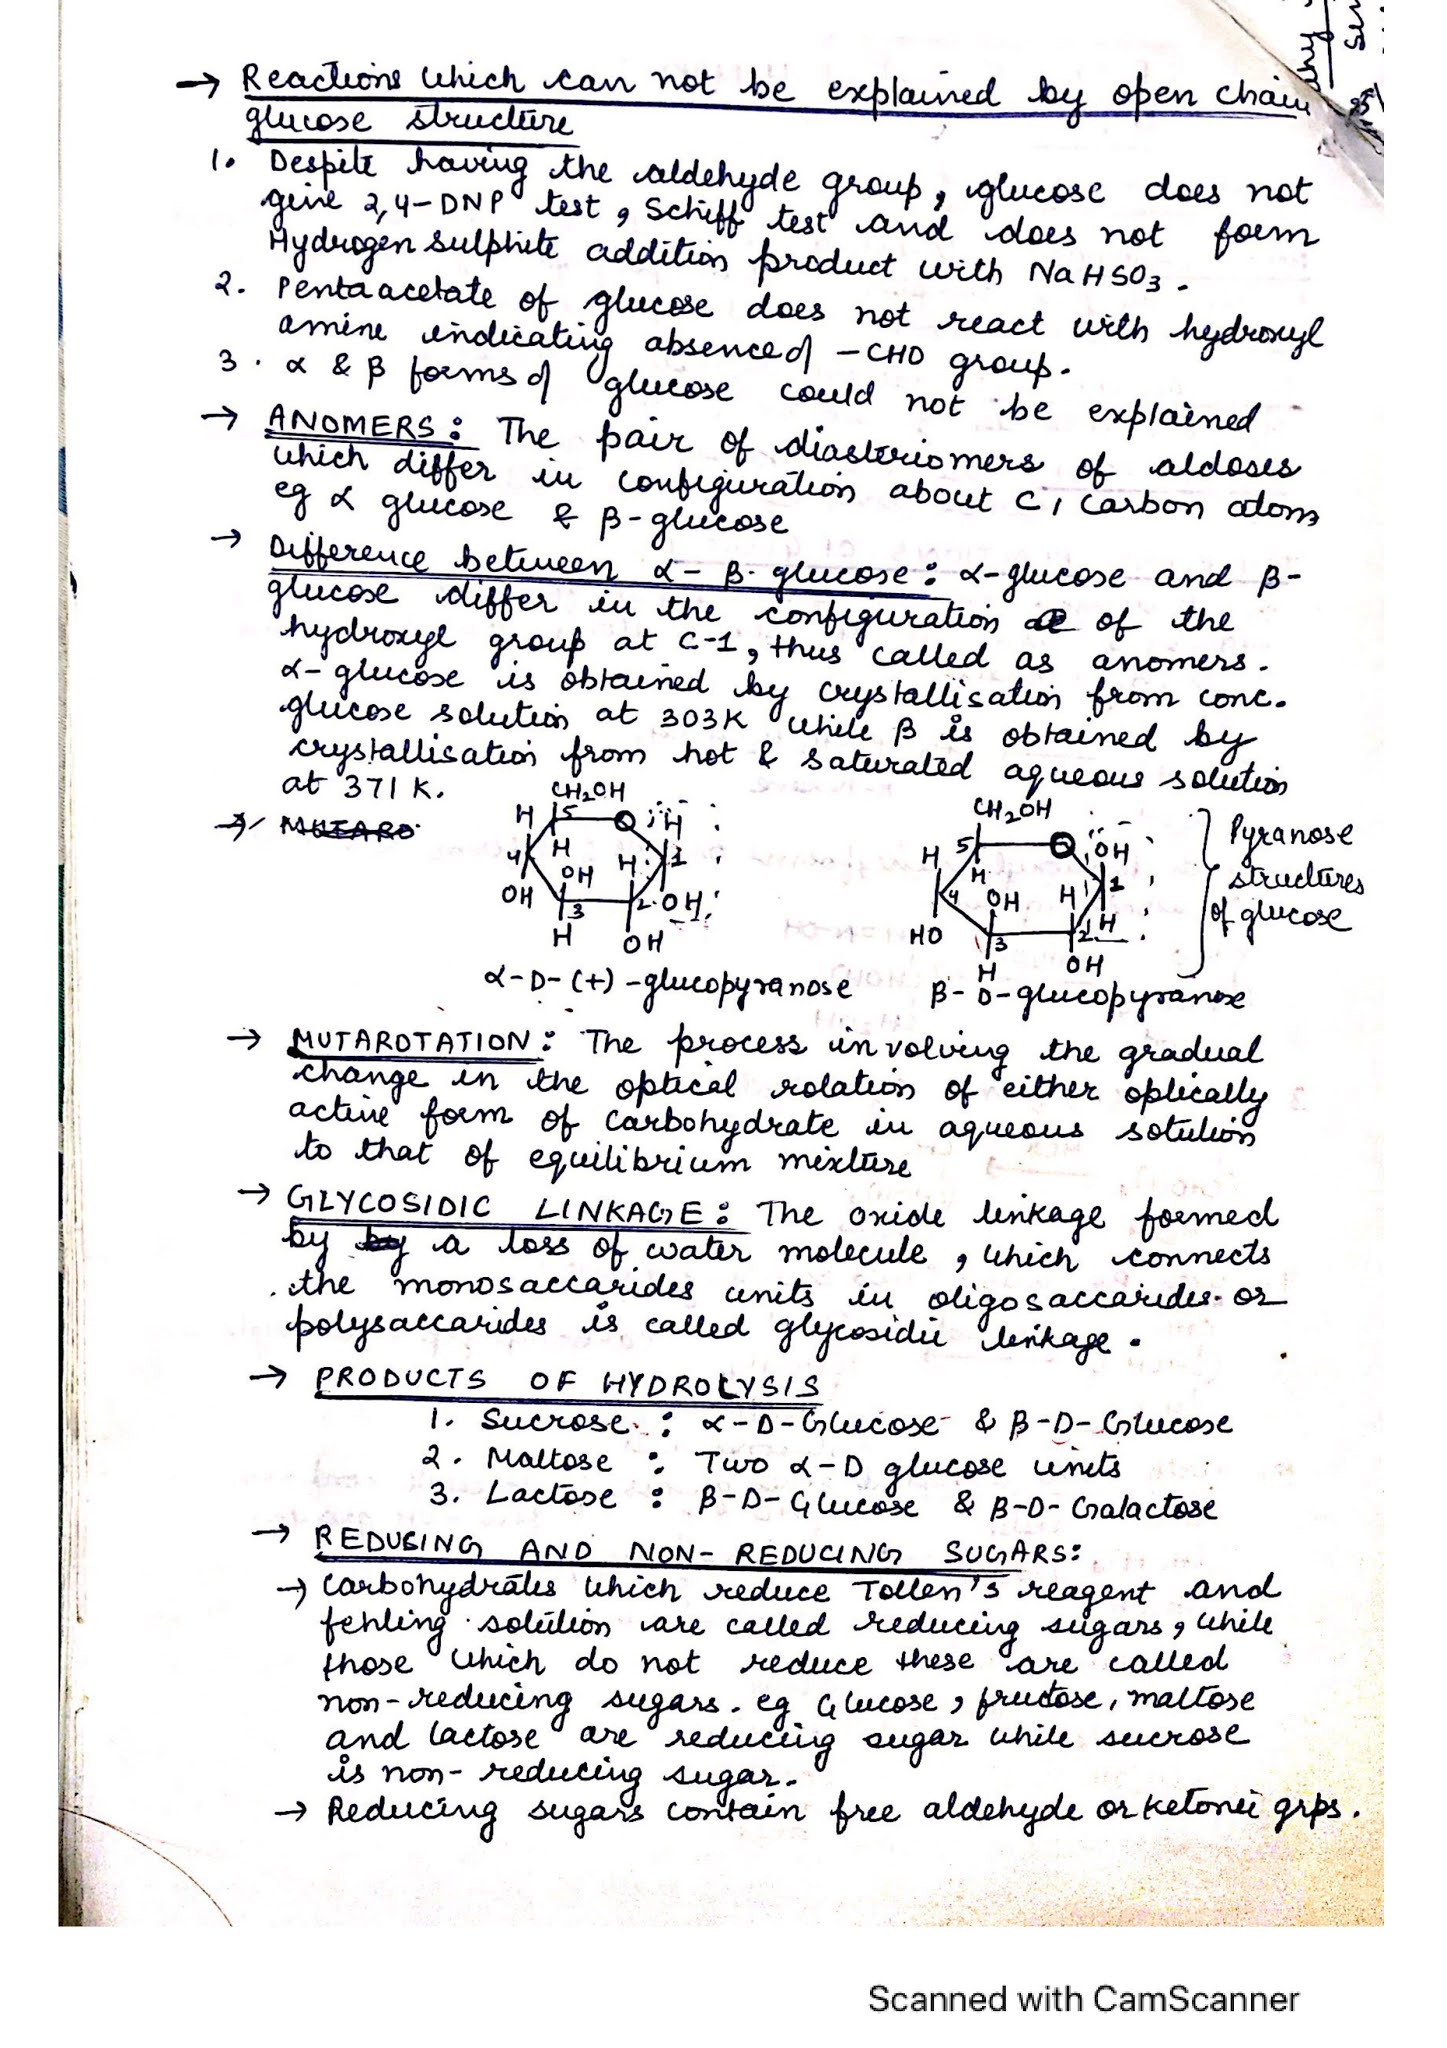 → Reactions which can not be explained by open chain
glucose structure
1. Despite having the aldehyde group, glucose does not
give 2,4-DNP test, Schiff test and does not form
Hydrogen sulphite addition product with NaHSO3.
2. Pentaacetate of glucose does not react with hydroxyl
amine indicating absence of -CHO group.
3. α & β forms of glucose could not be explained
→ ANOMERS: The pair of diasteriomers of aldoses
which differ in configuration about C1 carbon atom
eg α glucose & β-glucose
→ Difference between α- β- glucose: α-glucose and β-
glucose differ in the configuration of the
hydroxyl group at C-1, thus called as anomers.
α-glucose is obtained by crystallisation from conc.
glucose solution at 303K while β is obtained by
crystallisation from hot & saturated aqueous solution
at 371 K.
→ MUTARO
CH2OH
H 5 O H
4 H H 1
OH OH 3 2 OH
H OH
α-D-(+)-glucopyranose
CH2OH
H 5 O OH
4 H H 1
HO OH 3 2 H
H OH
β-D-glucopyranose
Pyranose
structures
of glucose
→ MUTAROTATION: The process involving the gradual
change in the optical rotation of either optically
active form of carbohydrate in aqueous solution
to that of equilibrium mixture
→ GLYCOSIDIC LINKAGE: The oxide linkage formed
by by a loss of water molecule, which connects
the monosaccarides units in oligosaccarides or
polysaccarides is called glycosidic linkage.
→ PRODUCTS OF HYDROLYSIS
1. Sucrose : α-D-Glucose & β-D-Glucose
2. Maltose : Two α-D glucose units
3. Lactose : β-D-Glucose & β-D-Galactose
→ REDUSING AND NON-REDUCING SUGARS:
→ Carbohydrates which reduce Tollen's reagent and
fehling solution are called reducing sugars, while
those which do not reduce these are called
non-reducing sugars. eg Glucose, fructose, maltose
and lactose are reducing sugar while sucrose
is non-reducing sugar.
→ Reducing sugars contain free aldehyde or ketonic grps.
Scanned with CamScanner